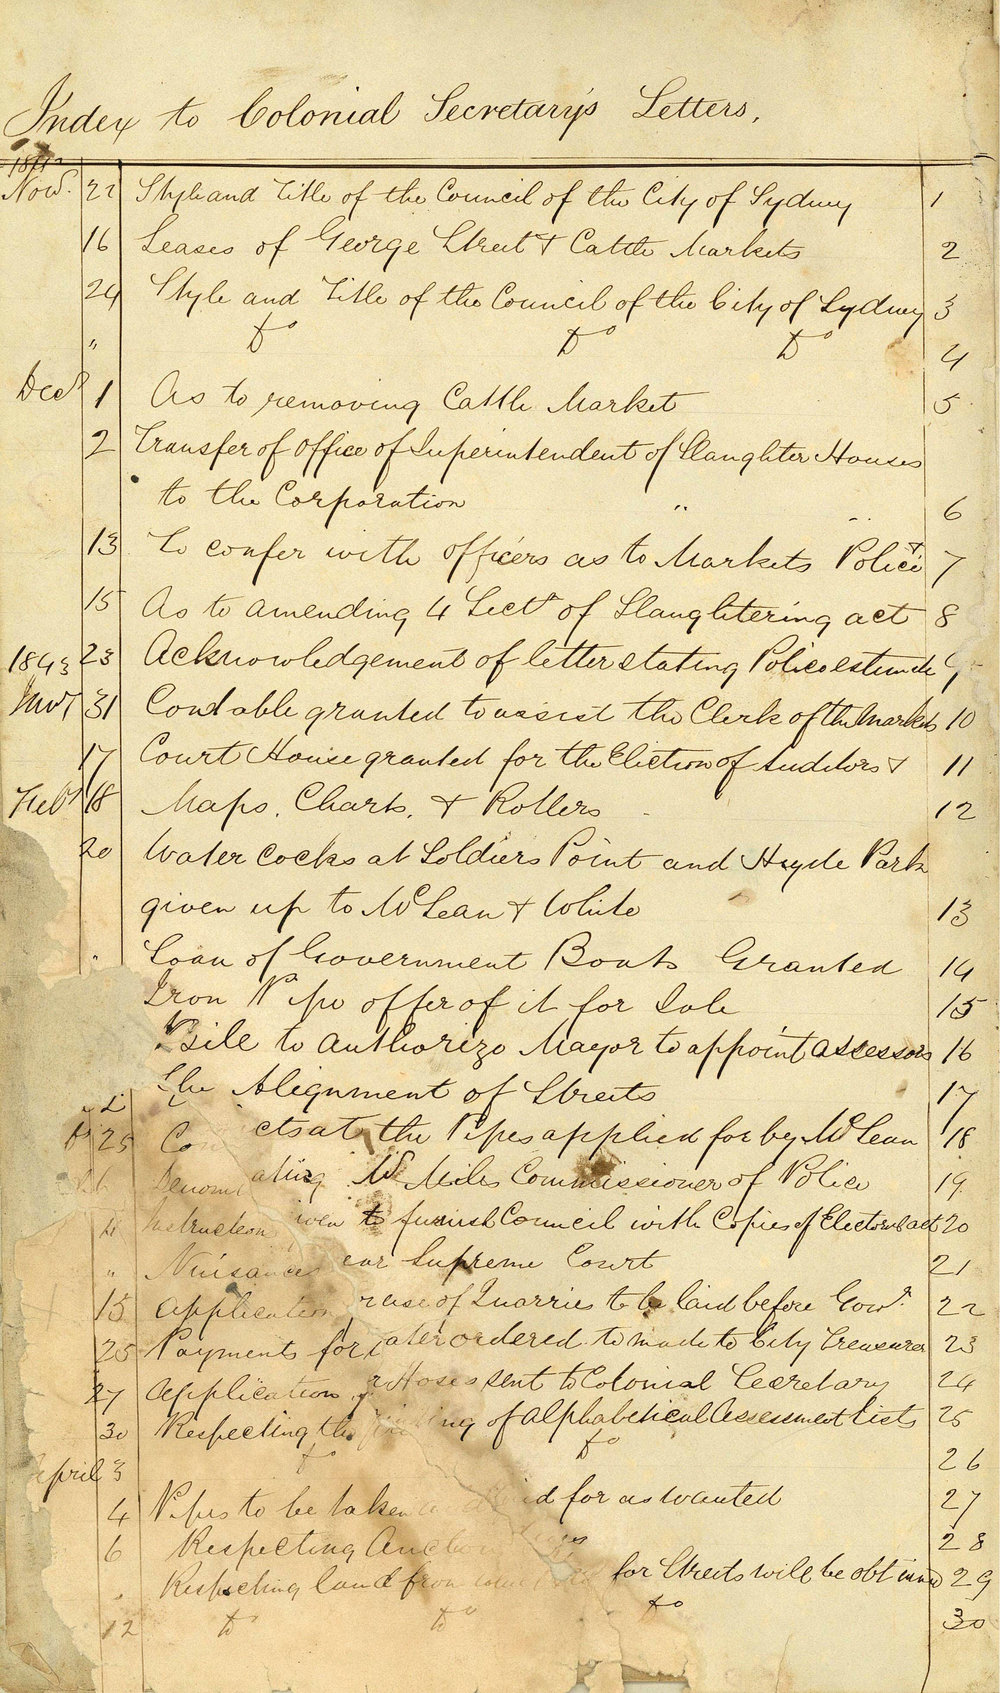 Index to Colonial Secretary's Letters.
1842
Novr. 22 Style and Title of the Council of the City of Sydney 1
16 Leases of George Street & Cattle Markets 2
24 Style and Title of the Council of the City of Sydney 3
" Do Do Do 4
Decr 1 As to removing Cattle Market 5
2 Transfer of Office of Superintendent of Slaughter Houses
to the Corporation " " 6
13 To confer with officers as to Markets & Police 7
15 As to amending 4 Sectn of Slaughtering act 8
1843 23 Acknowledgement of letter stating Police estimate 9
Jany 31 Constable granted to assist the Clerk of the Markets 10
17 Court House granted for the Election of Auditors & 11
Feby 18 Maps, Charts, & Rollers 12
20 Water Cocks at Soldiers Point and Hyde Park
given up to McLean & White 13
" Loan of Government Boats Granted 14
Iron Pipe offer of it for Sale 15
Bill to authorize Mayor to appoint assessors 16
The Alignment of Streets 17
25 at the Pipes applied for by McLean 18
Mr Miles Commissioner of Police 19
4 Instructions given to furnish Council with Copies of Electoral act 20
" Nuisances near Supreme Court 21
15 Application of Quarries to be laid before Govr. 22
25 Payments for water ordered to made to City Treasurer 23
27 Application for Hoses sent to Colonial Secretary 24
30 Respecting the printing of Alphabetical Assessment Lists 25
April 3 Do Do 26
4 Pipes to be taken and paid for as wanted 27
6 Respecting Auction 28
" Respecting land from for Streets will be obtained 29
12 Do Do Do 30